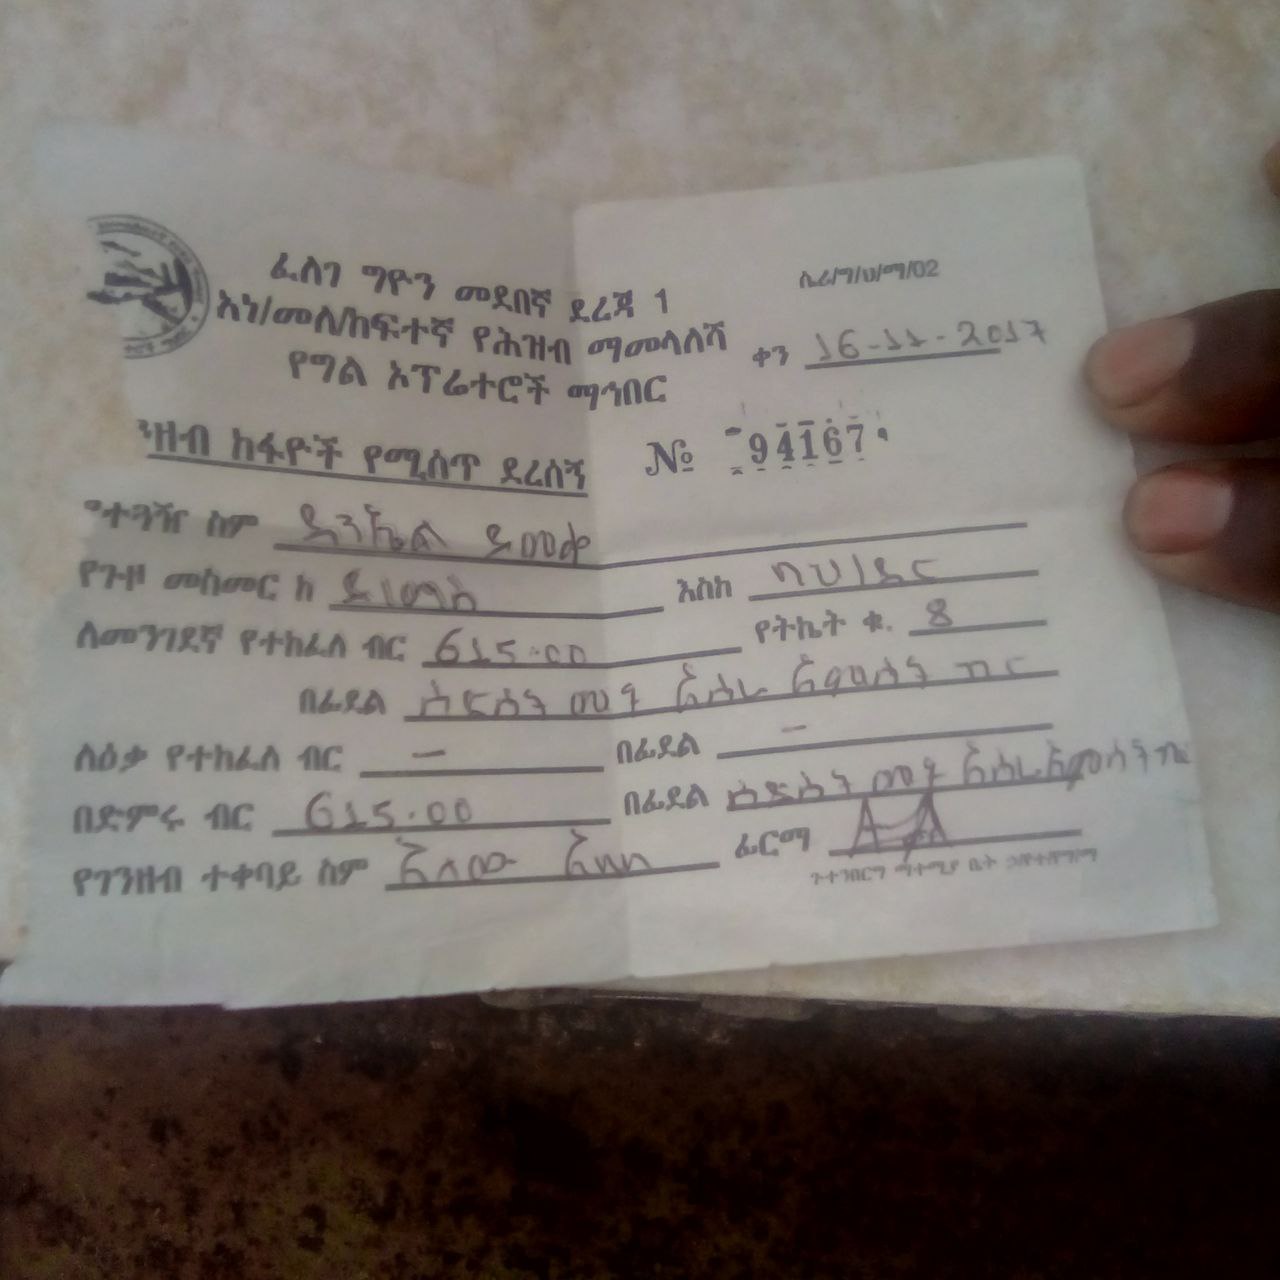 ፈለገ ግዮን መደበኛ ደረጃ 1
አነ/መለ/ከፍተኛ የሕዝብ ማመላለሻ
የግል ኦፕሬተሮች ማኅበር
ሲሪ/ግ/ህ/ማ/02
ቀን 16-11-2017
ንዘብ ከፋዮች የሚሰጥ ደረሰኝ № 94167
ተጓዥ ስም ዳንኤል ደመቀ
የጉዞ መስመር ከ እስከ ባህዳር
ለመንገደኛ የተከፈለ ብር 615.00 የትኬት ቁ. 8
በፊደል ስድስት መቶ አስራ አምስት ብር
ለዕቃ የተከፈለ ብር — በፊደል —
በድምሩ ብር 615.00 በፊደል ስድስት መቶ አስራ አምስት ብር
የገንዘብ ተቀባይ ስም ፊርማ